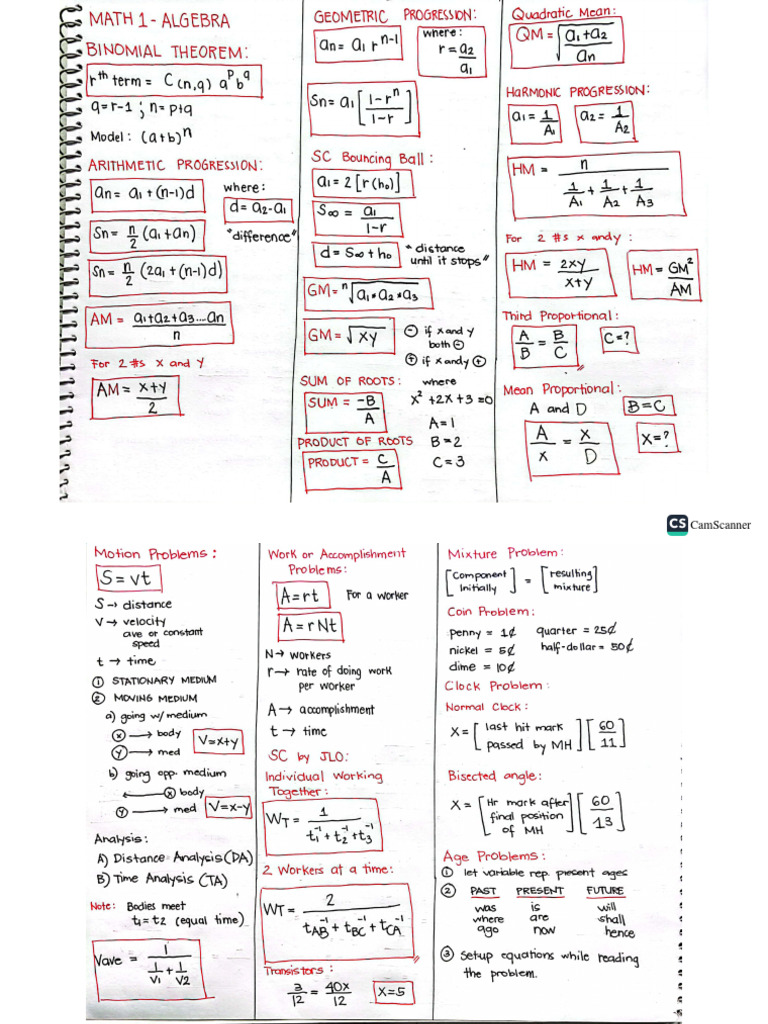 MATH 1 - ALGEBRA
BINOMIAL THEOREM:
rth term = C(n,q) a^p b^q
q=r-1 ; n=p+q
Model: (a+b)^n
ARITHMETIC PROGRESSION:
an = a1 + (n-1)d
where:
d = a2-a1
"difference"
Sn = n/2 (a1+an)
Sn = n/2 (2a1+(n-1)d)
AM = a1+a2+a3....an / n
For 2 #s x and y
AM = x+y / 2
GEOMETRIC PROGRESSION:
an = a1 r^n-1
where:
r = a2/a1
Sn = a1 [1-r^n / 1-r]
SC Bouncing Ball:
a1 = 2 [r(ho)]
S∞ = a1 / 1-r
d = S∞ + ho
"distance
until it stops"
GM = n√a1*a2*a3
GM = √xy
⊖ if x and y
both ⊖
⊕ if x and y ⊕
SUM OF ROOTS:
SUM = -B/A
where
x²+2x+3=0
A=1
B=2
C=3
PRODUCT OF ROOTS
PRODUCT = C/A
Quadratic Mean:
QM = √a1+a2 / an
HARMONIC PROGRESSION:
a1 = 1/A1
a2 = 1/A2
HM = n / 1/A1 + 1/A2 + 1/A3
For 2 #s x and y:
HM = 2xy / x+y
HM = GM² / AM
Third Proportional:
A/B = B/C
C=?
Mean Proportional:
A and D
B=C
A/x = x/D
X=?
CS CamScanner
Motion Problems:
S=vt
S → distance
V → velocity
ave or constant
speed
t → time
① STATIONARY MEDIUM
② MOVING MEDIUM
a) going w/ medium
ⓧ → body
ⓨ → med
V=x+y
b) going opp. medium
← ⓧ body
ⓨ → med
V=x-y
Analysis:
A) Distance Analysis (DA)
B) Time Analysis (TA)
Note: Bodies meet
t1=t2 (equal time)
Vave = 1 / 1/V1 + 1/V2
Work or Accomplishment
Problems:
A=rt
For a worker
A=rNt
N → workers
r → rate of doing work
per worker
A → accomplishment
t → time
SC by JLO:
Individual Working
Together:
WT = 1 / t1^-1 + t2^-1 + t3^-1
2 Workers at a time:
WT = 2 / tAB^-1 + tBC^-1 + tCA^-1
Transistors:
3/12 = 40x/12
X=5
Mixture Problem:
[Component Initially] = [resulting mixture]
Coin Problem:
penny = 1¢
quarter = 25¢
nickel = 5¢
half-dollar = 50¢
dime = 10¢
Clock Problem:
Normal Clock:
X = [last hit mark passed by MH] [60/11]
Bisected angle:
X = [Hr mark after final position of MH] [60/13]
Age Problems:
① let variable rep. present ages
② PAST PRESENT FUTURE
was is will
where are shall
ago now hence
③ Setup equations while reading
the problem.